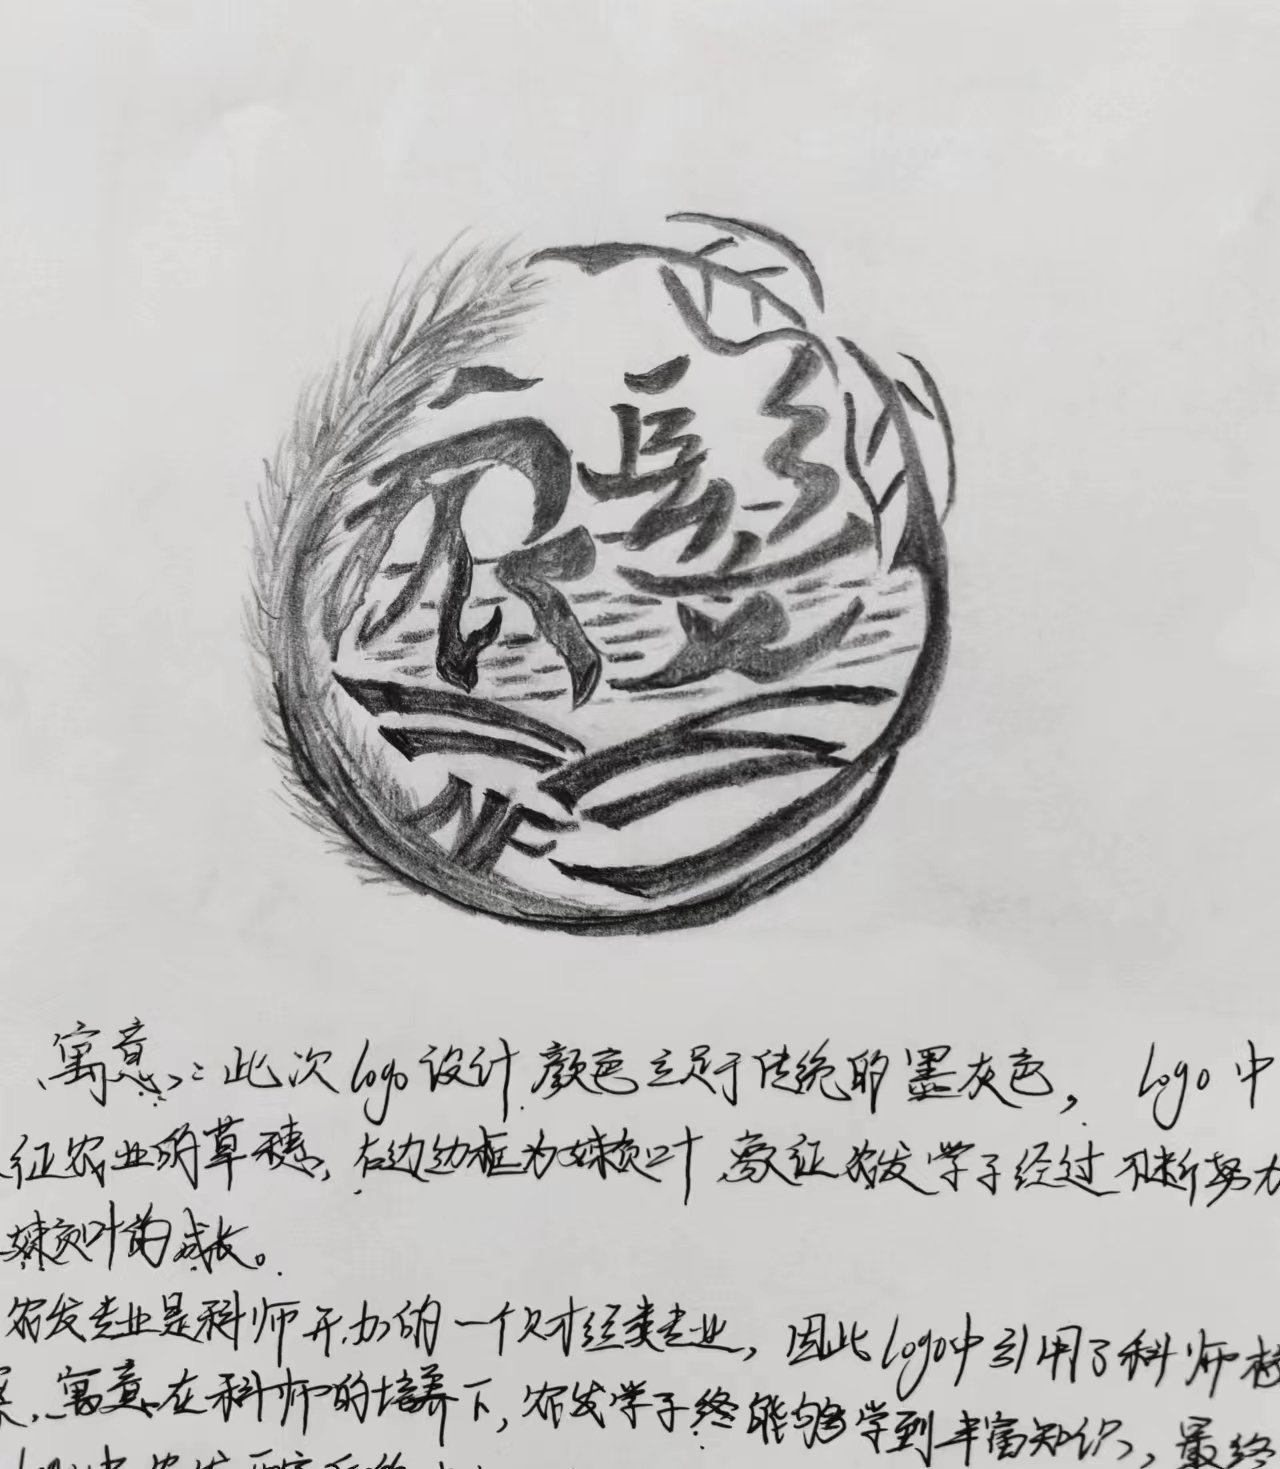 农發
NF
寓意：此次logo设计颜色立足于传统的墨灰色，logo中
征农业的草穗，右边边框为辣椒叶，象征农发学子经过不断努力
辣椒叶的成长。
农发专业是科师开办的一个财经类专业，因此logo中引用了科师校
案，寓意在科师的培养下，农发学子终能够学到丰富知识，最终